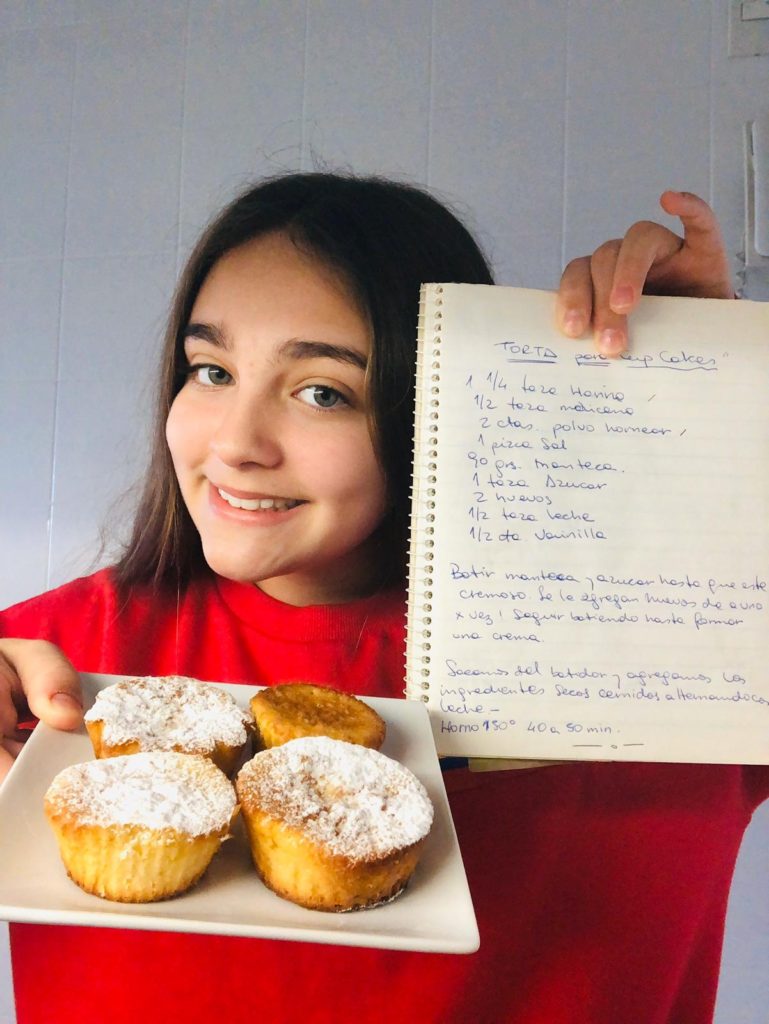 TORTA para Cup Cakes"
1 1/4 taza Harina
1/2 taza maicena
2 ctas. polvo hornear
1 pizca Sal
90 grs. Manteca.
1 taza Azucar
2 huevos
1/2 taza leche
1/2 cta Vainilla
Batir manteca y azucar hasta que este
cremoso. Se le agregan huevos de a uno
x vez! Seguir batiendo hasta formar
una crema.
Sacamos del batidor y agregamos los
ingredientes secos cernidos alternando con
leche -
Horno 150° 40 a 50 min.